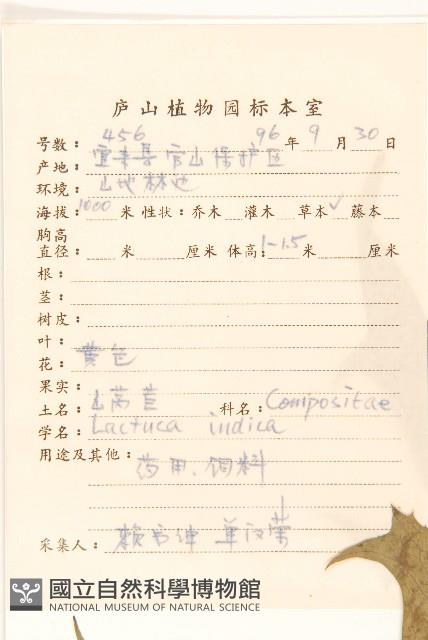 庐山植物园标本室
号数: 456 96年 9月 30日
产地: 宜丰县官山保护区
环境: 山地林边
海拔: 1000米 性状: 乔木 灌木 草本✓ 藤本
胸高
直径: 米 厘米 体高: 1-1.5米 厘米
根:
茎:
树皮:
叶:
花: 黄色
果实:
土名: 山莴苣 科名: Compositae
学名: Lactuca indica
用途及其他: 药用、饲料
采集人: 赖书绅 单汉荣
國立自然科學博物館
NATIONAL MUSEUM OF NATURAL SCIENCE